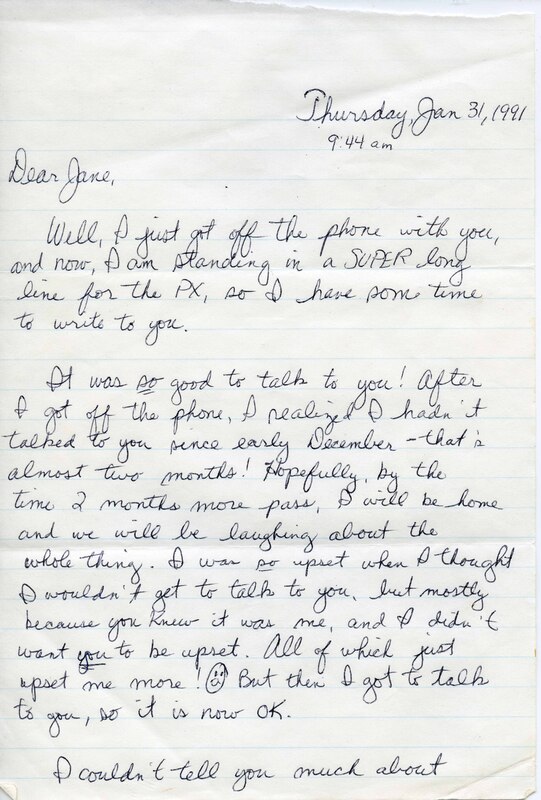 Thursday, Jan 31, 1991
9:44 am
Dear Jane,
Well, I just got off the phone with you,
and now, I am standing in a SUPER long
line for the PX, so I have some time
to write to you.
It was so good to talk to you! After
I got off the phone, I realized I hadn't
talked to you since early December - that's
almost two months! Hopefully, by the
time 2 months more pass, I will be home
and we will be laughing about the
whole thing. I was so upset when I thought
I wouldn't get to talk to you, but mostly
because you knew it was me, and I didn't
want you to be upset. All of which just
upset me more! But then I got to talk
to you, so it is now OK.
I couldn't tell you much about